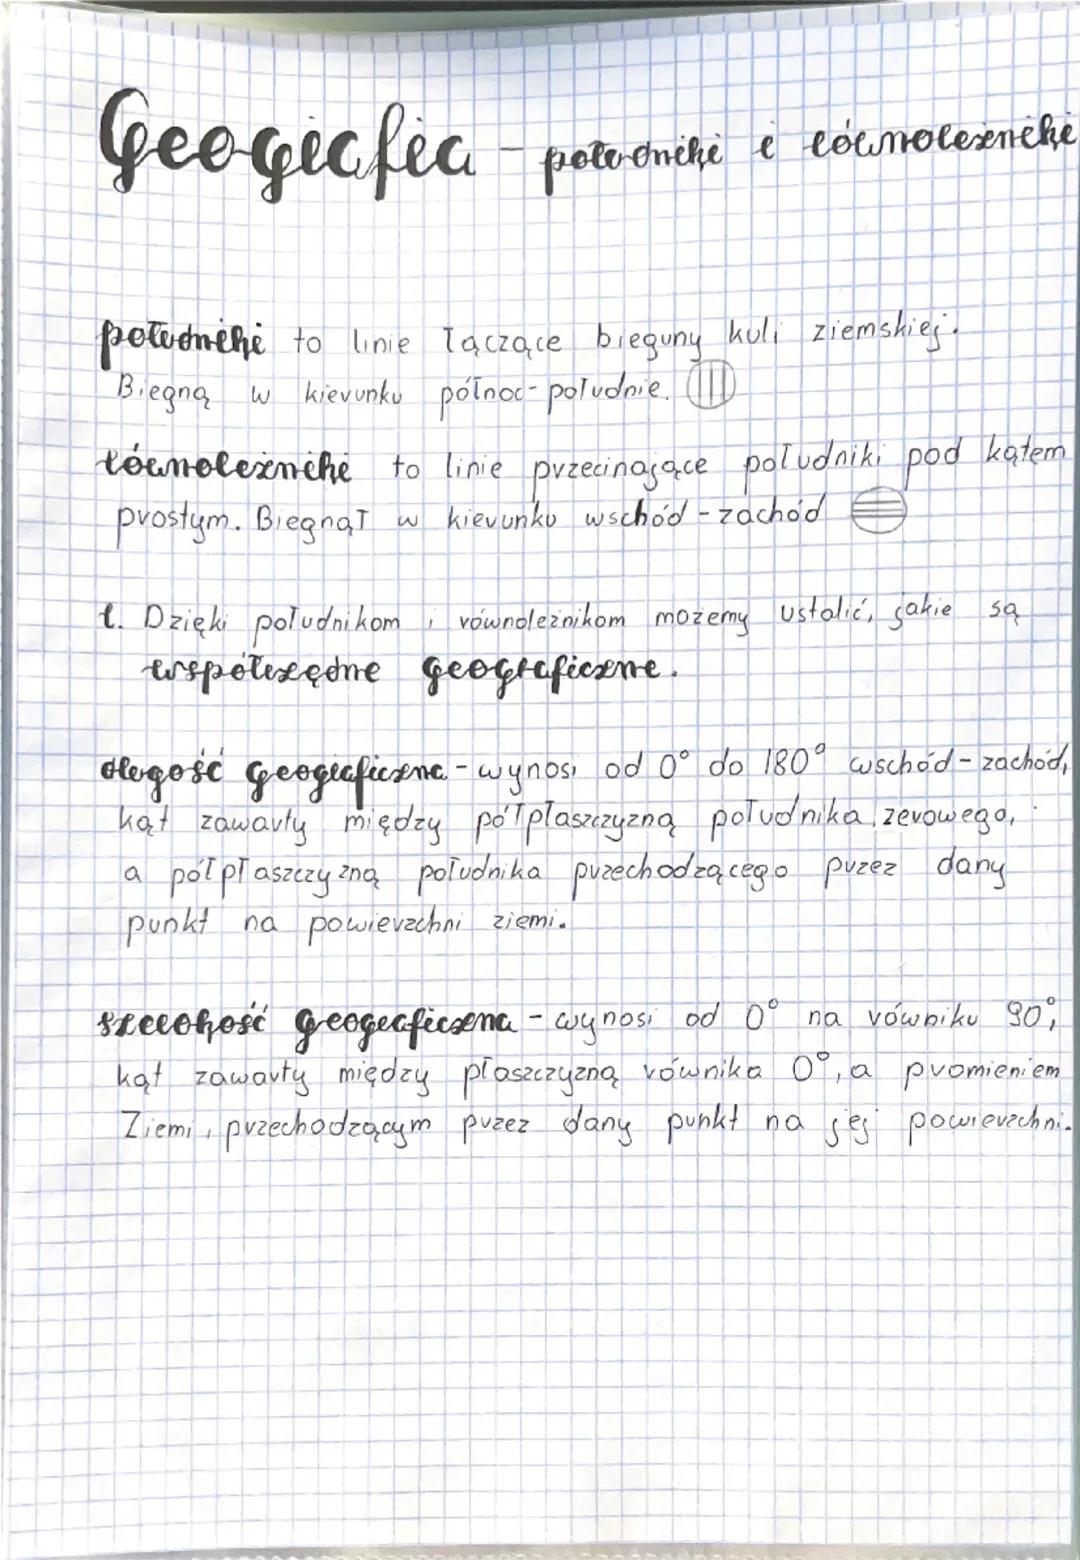 Geografia - południki i równoleżniki
południki to linie łączące bieguny kuli ziemskiej.
Biegną w kierunku północ-południe.
równoleżniki to linie przecinające południki pod kątem
prostym. Biegnął w kierunku wschód-zachód
1. Dzięki południkom i równoleżnikom możemy ustalić, jakie są
współrzędne geograficzne.
długość geograficzna - wynosi od 0° do 180° wschód-zachód,
kąt zawarty między półpłaszczyzną południka zerowego,
a półpłaszczyzną południka przechodzącego przez dany
punkt na powierzchni ziemi.
szerokość geograficzna - wynosi od 0° na równiku 90°,
kąt zawarty między płaszczyzną równika 0°, a promieniem
Ziemi, przechodzącym przez dany punkt na jej powierzchni.